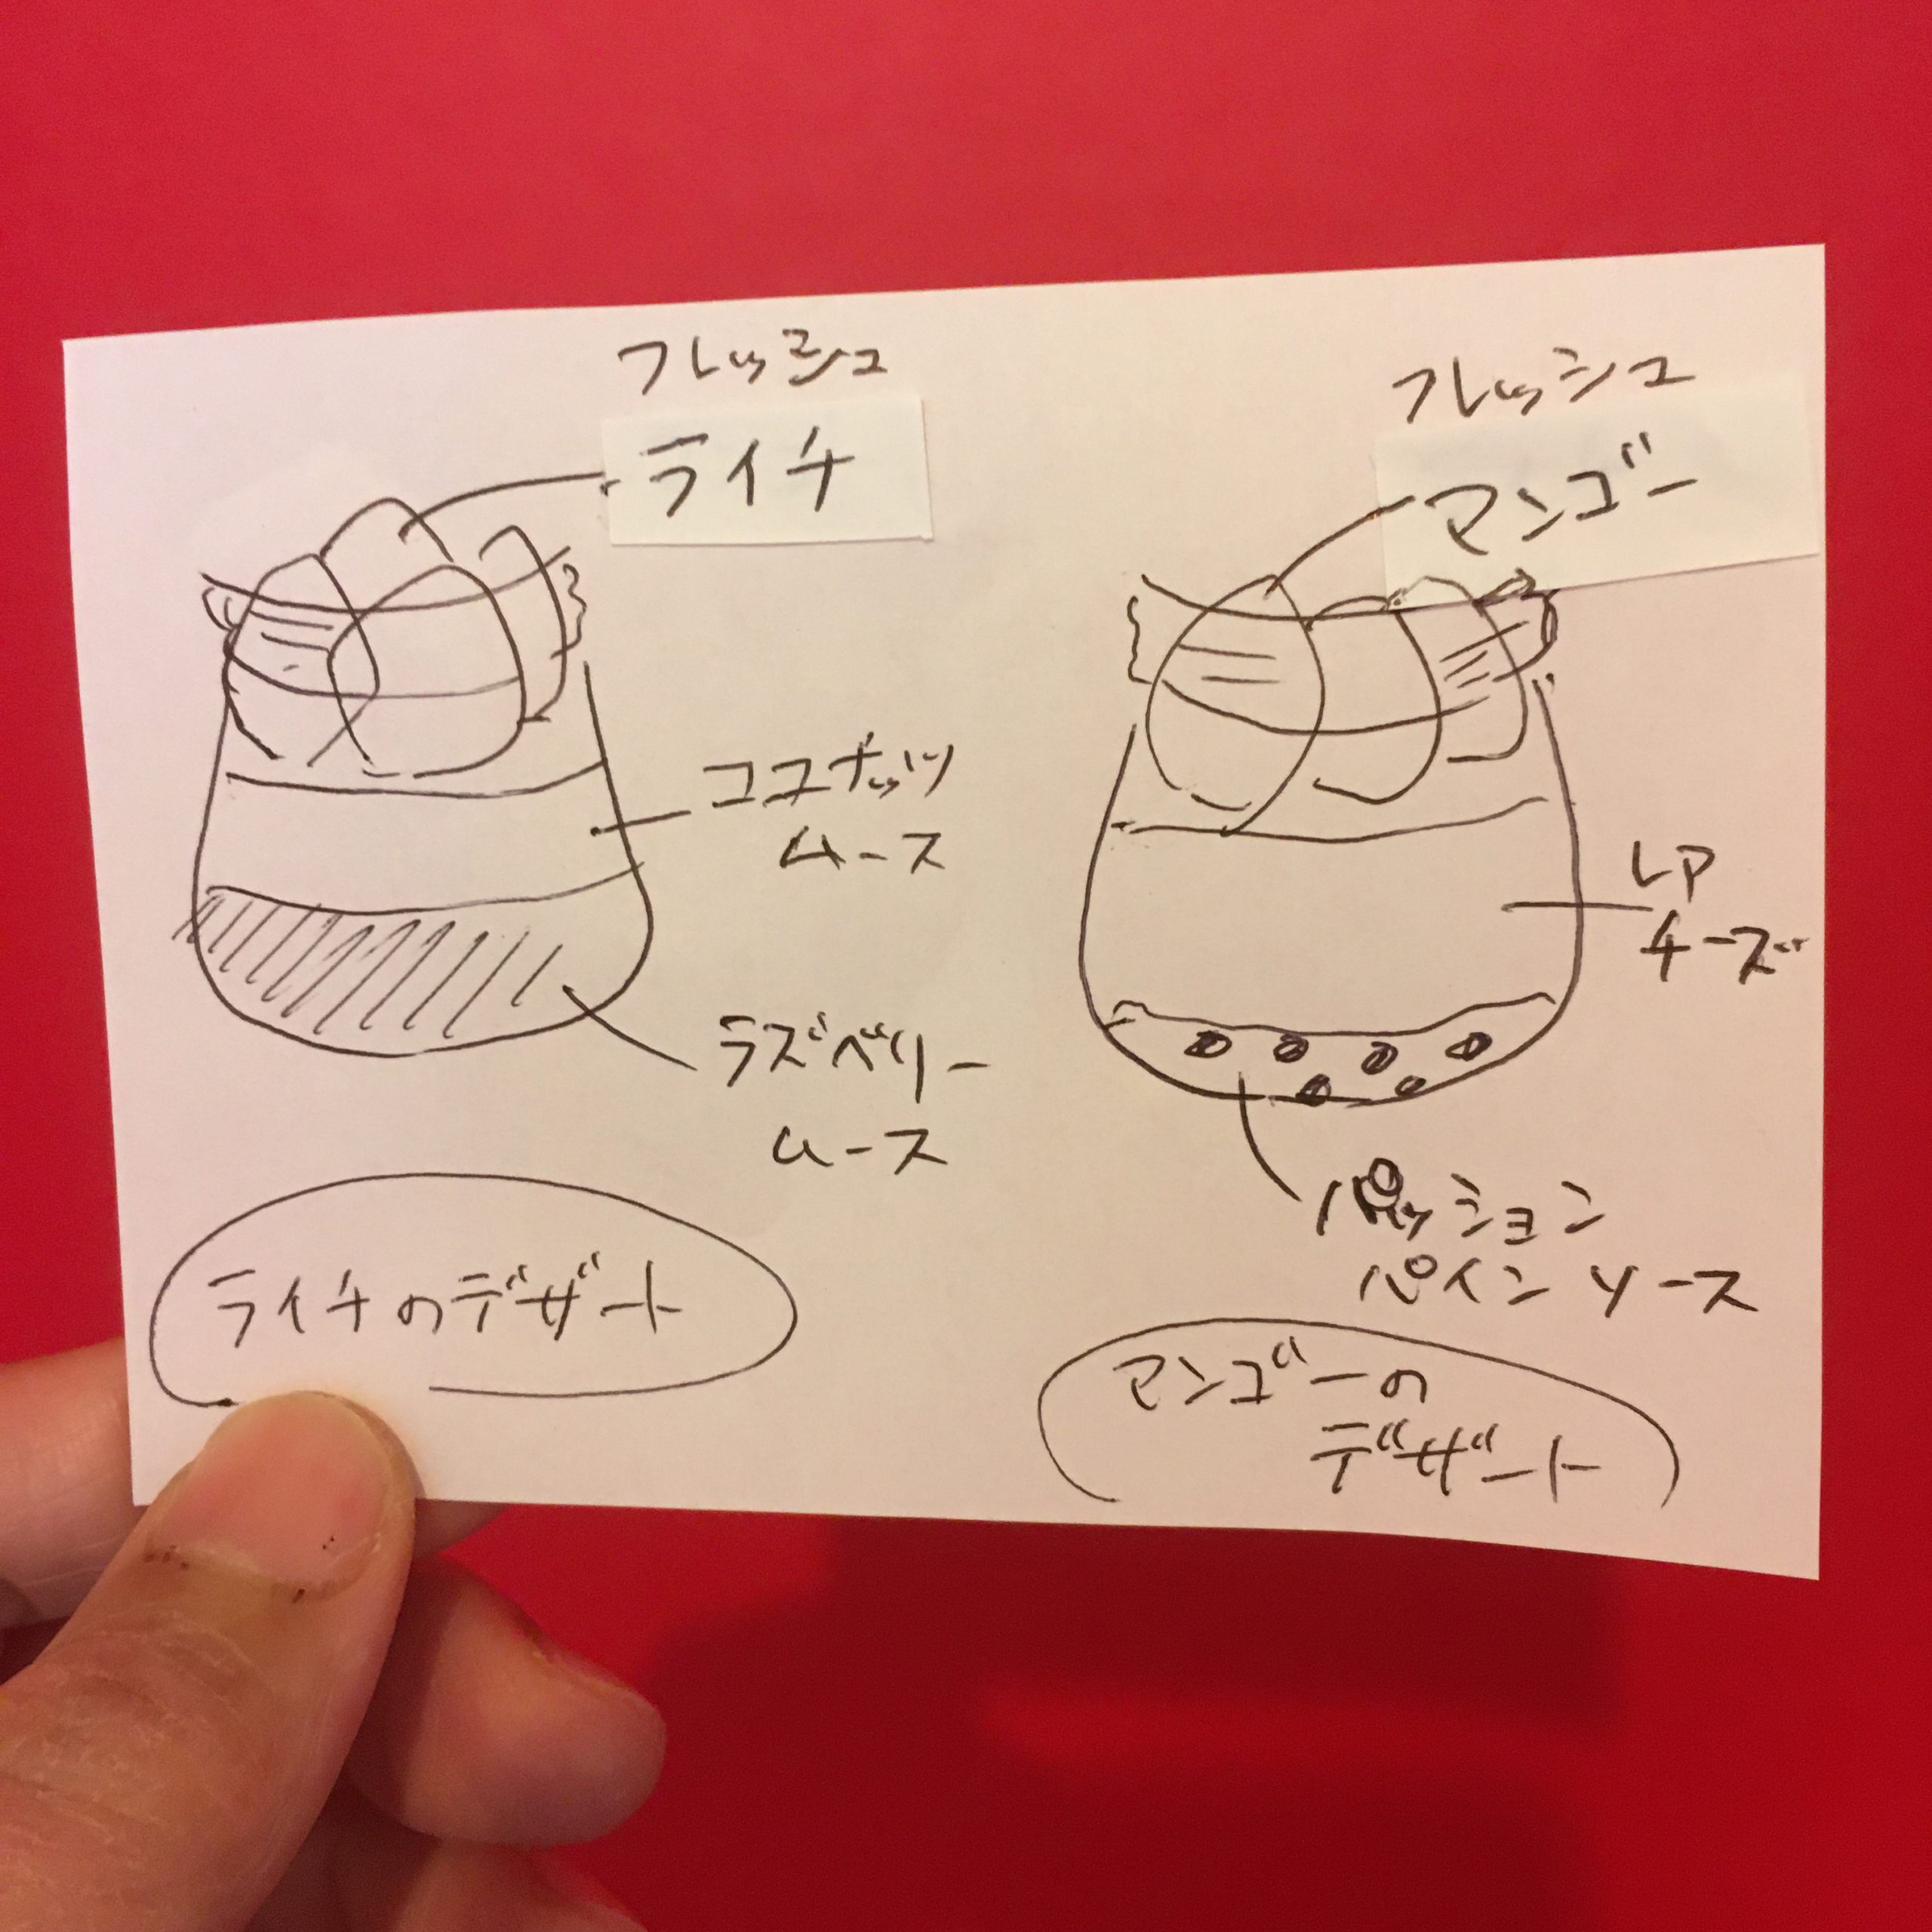 フレッシュ
ライチ
ココナッツ
ムース
ラズベリー
ムース
ライチのデザート
フレッシュ
マンゴー
レア
チーズ
パッション
パインソース
マンゴーの
デザート